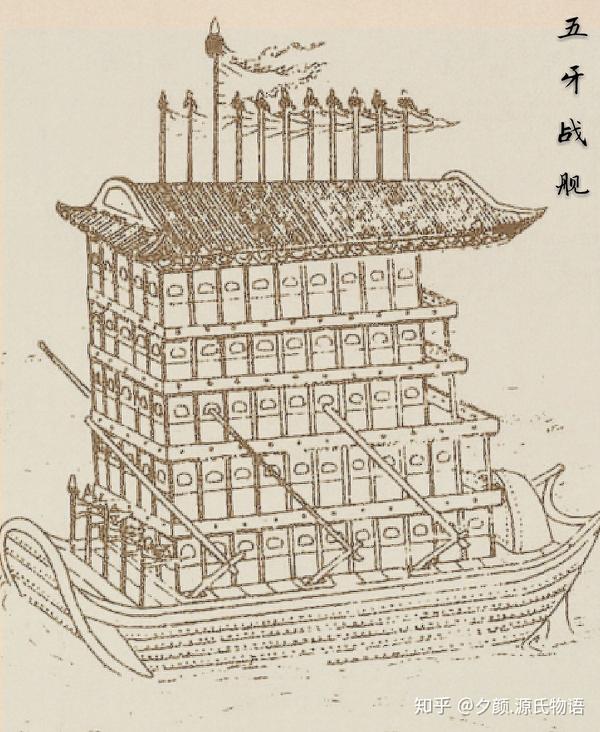 五牙战舰
知乎 @夕颜.源氏物语